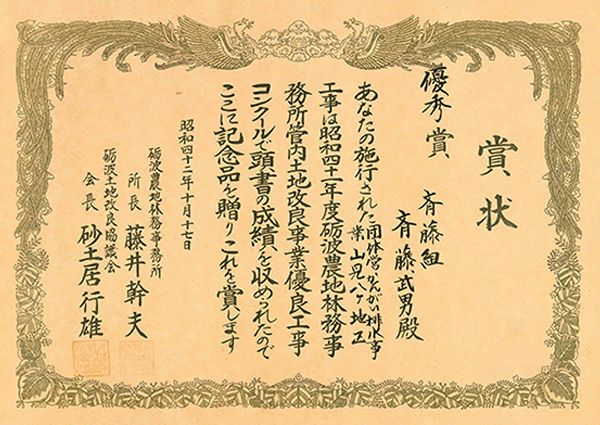 賞状
優秀賞
斉藤組
斉藤武男殿
あなたの施行された団体営かんがい排水事業山見八ケ地区
工事は昭和四十一年度砺波農地林務事
務所管内土地改良事業優良工事
コンクールで頭書の成績を収められたので
ここに記念品を贈りこれを賞します
昭和四十二年十月十七日
砺波農地林務事務所
所長 藤井幹夫
砺波土地改良協議会
会長 砂土居行雄